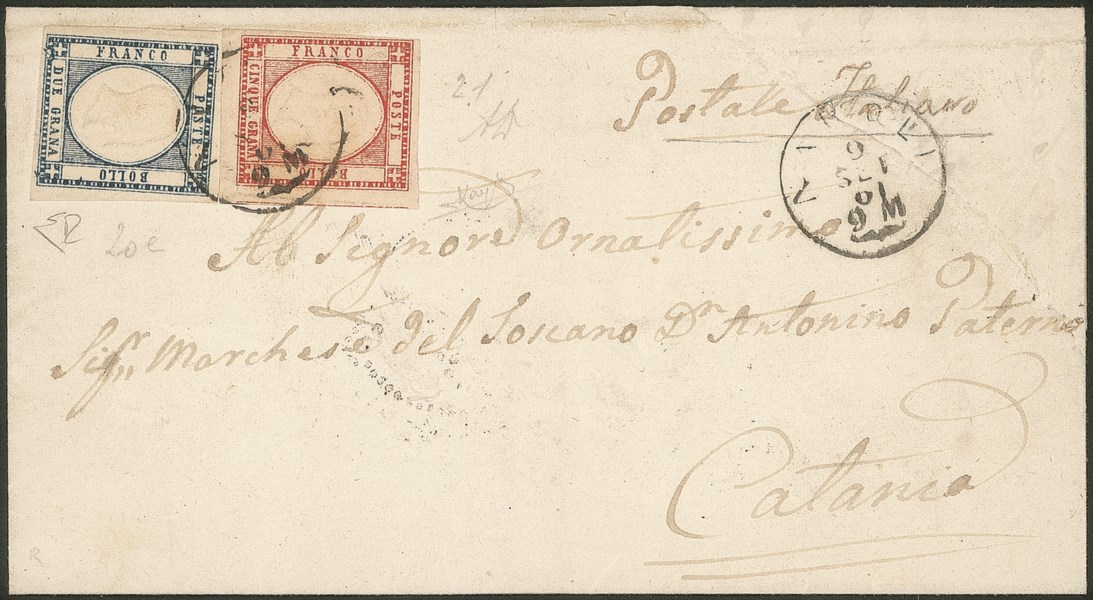 FRANCO
DUE GRANA
POSTE
BOLLO
FRANCO
CINQUE GRANA
POSTE
BOLLO
21
20c
Postale Italiano
NAPOLI
6
SET
61
9 M
9 M
Al Signore Ornatissimo
Sigr Marchese del Toscano Dn Antonino Paternò
Catania
R